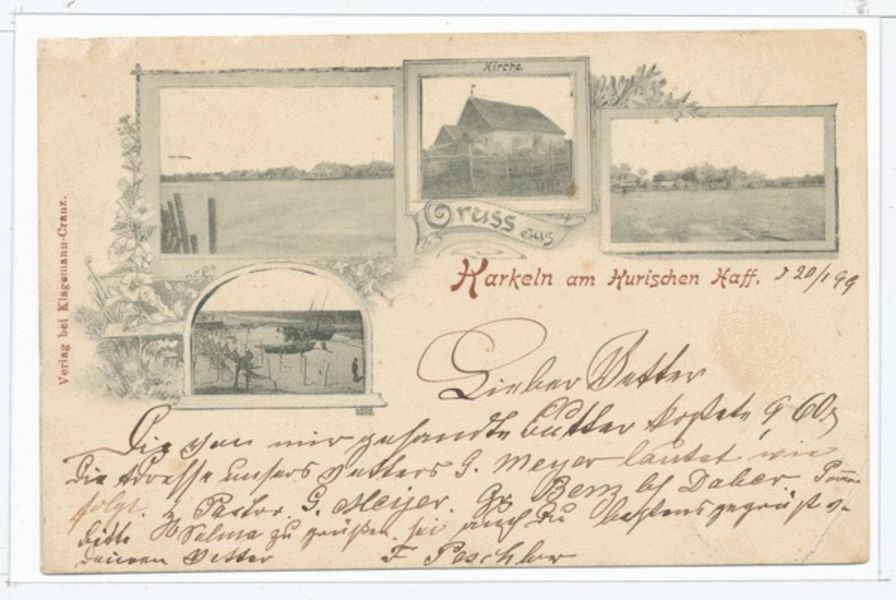 Kirche
Gruss aus
Karkeln am Kurischen Haff.
20/1 99
Verlag bei Klagemann-Cranz.
Lieber Vetter
Die von mir gesandte Butter kostete 9,60
die Adresse unsers Vetters G. Meyer lautet wie
folgt. Pastor G. Meyer. Gr Benz b/ Daber.
bitte Selma zu grüßen sei auch Du bestens gegrüßt v.
deinem Vetter F Peschler